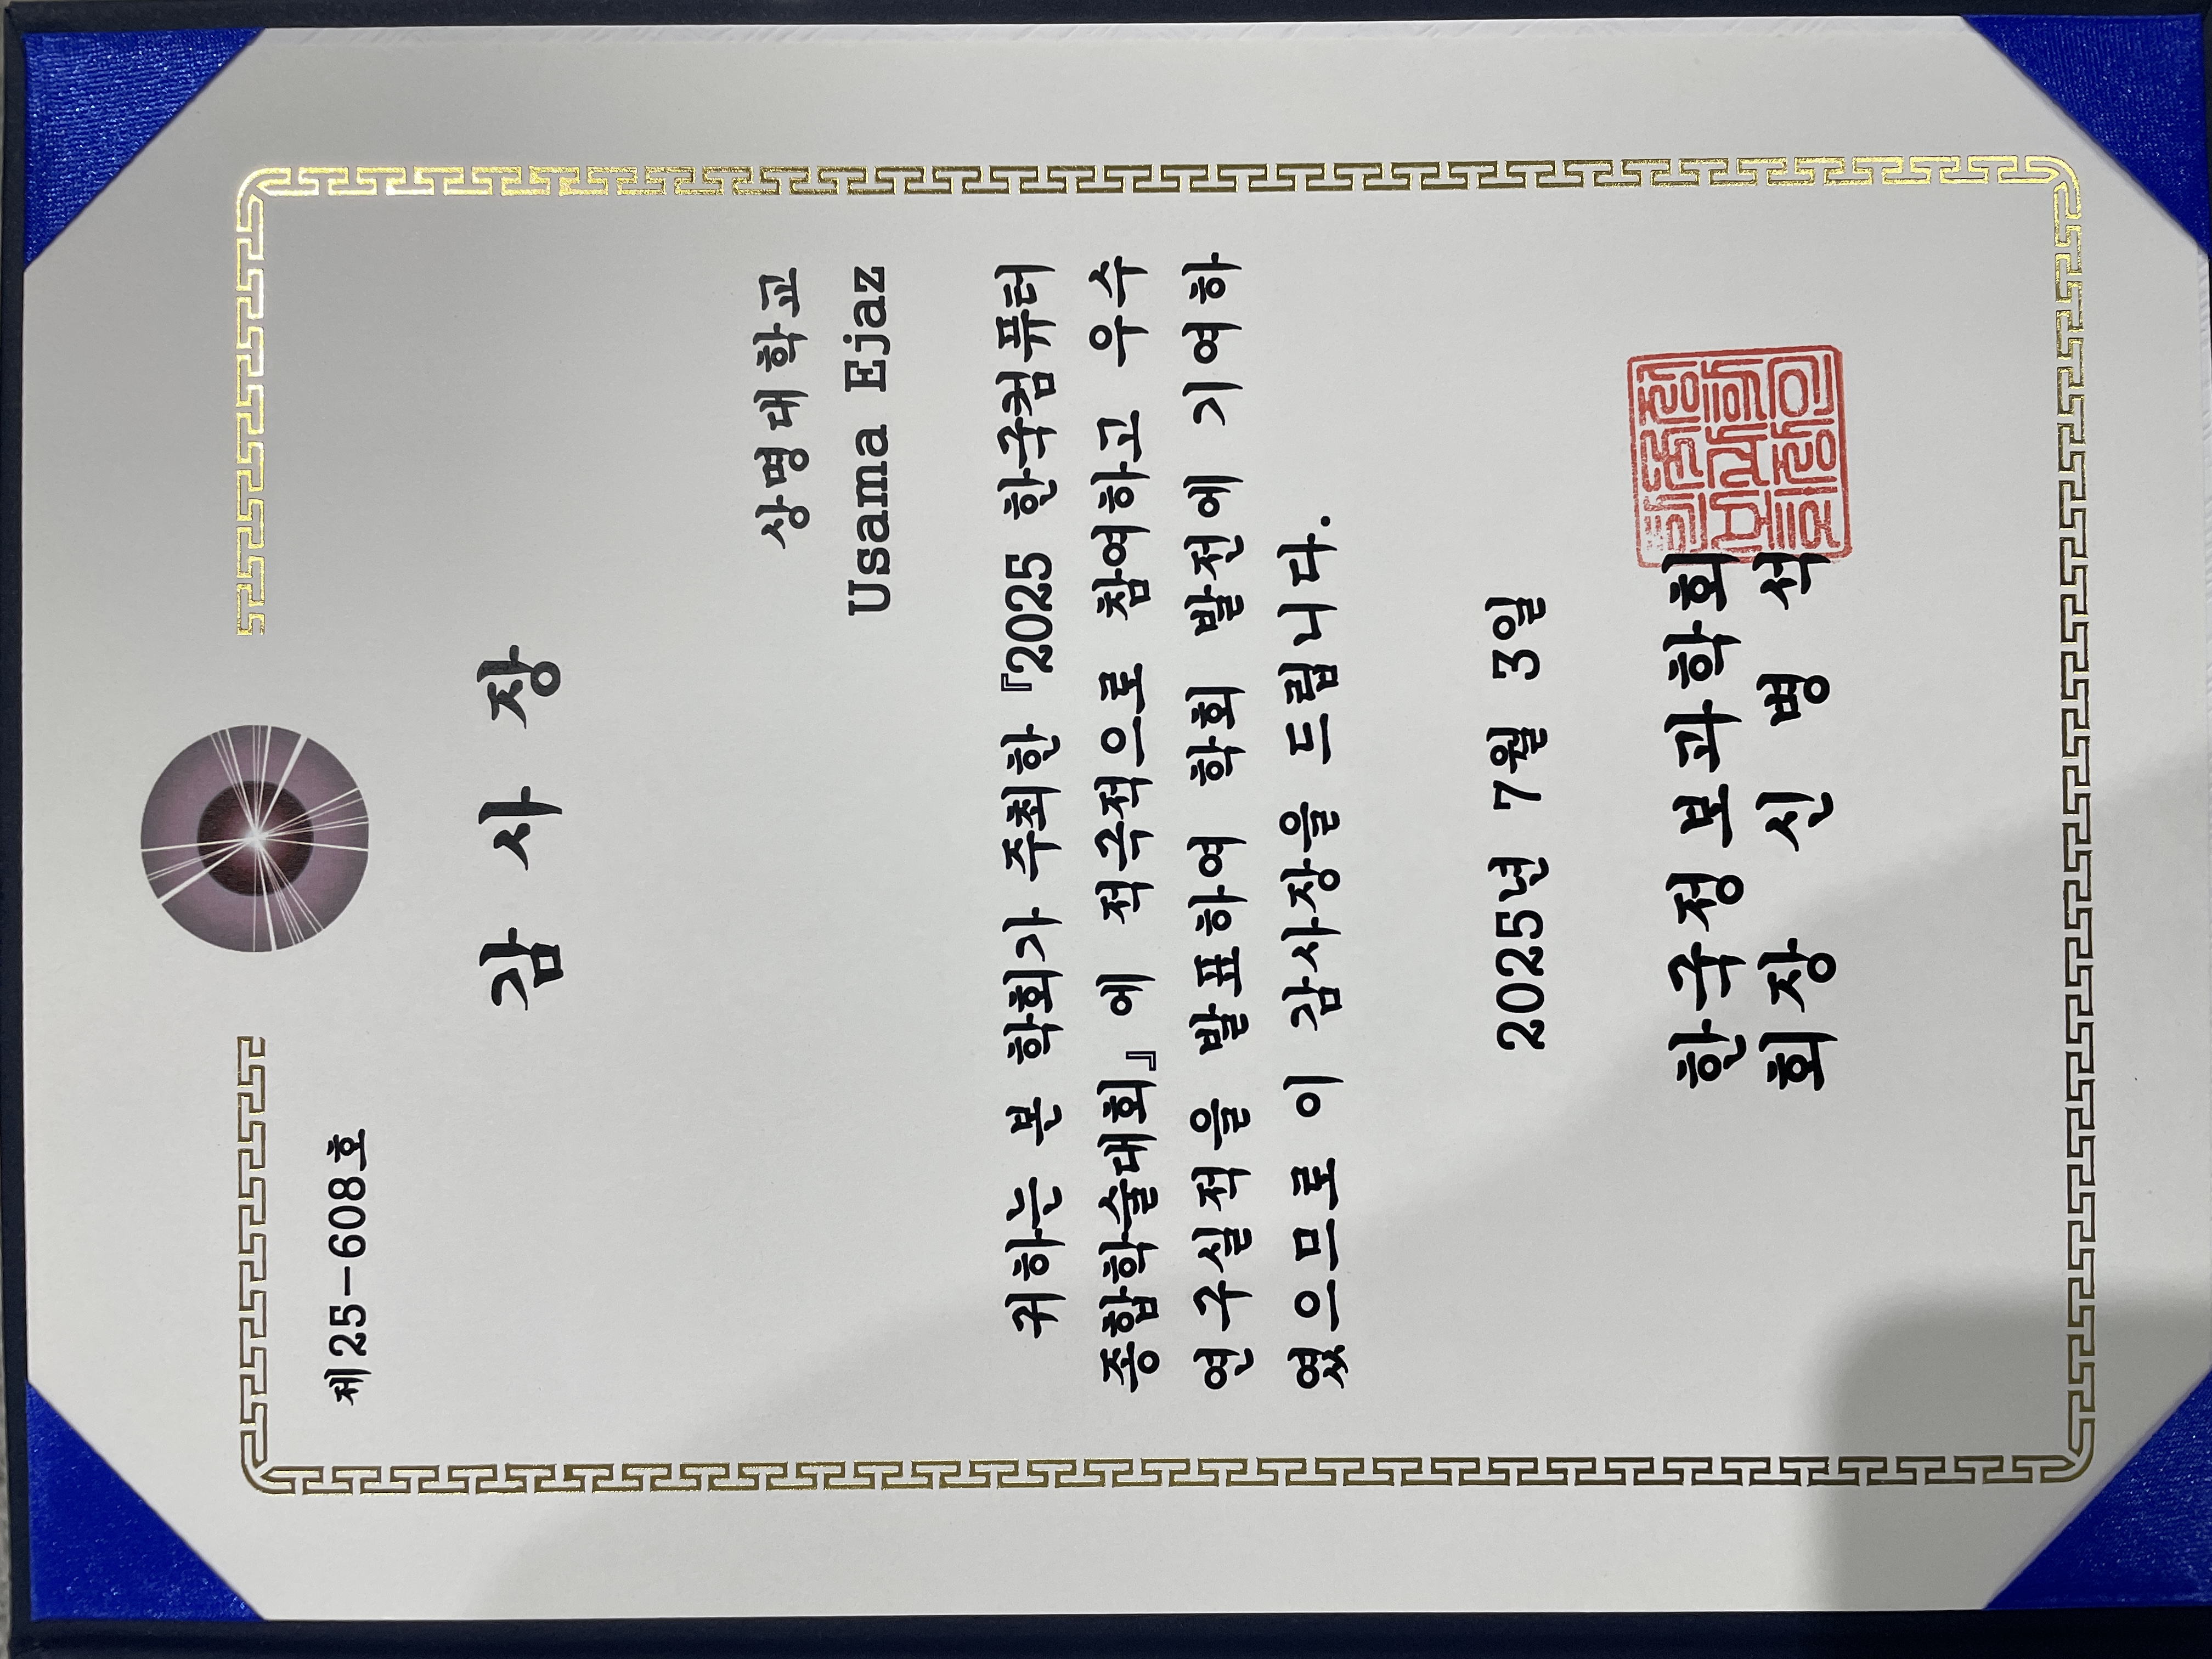 제25-608호
감 사 장
상명대학교
Usama Ejaz
귀하는 본 학회가 주최한 『2025 한국컴퓨터
종합학술대회』에 적극적으로 참여하고 우수
연구실적을 발표하여 학회 발전에 기여하
였으므로 이 감사장을 드립니다.
2025년 7월 3일
한국정보과학회
회장 신 병 석